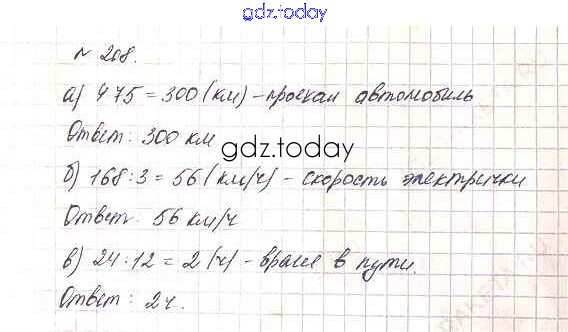 gdz.today
N 208.
а) 4 75 = 300 (км) - проехал автомобиль
Ответ: 300 км
gdz.today
б) 168 : 3 = 56 (км/ч) - скорость электрички
Ответ: 56 км/ч
в) 24 : 12 = 2 (ч) - время в пути.
Ответ: 2ч.